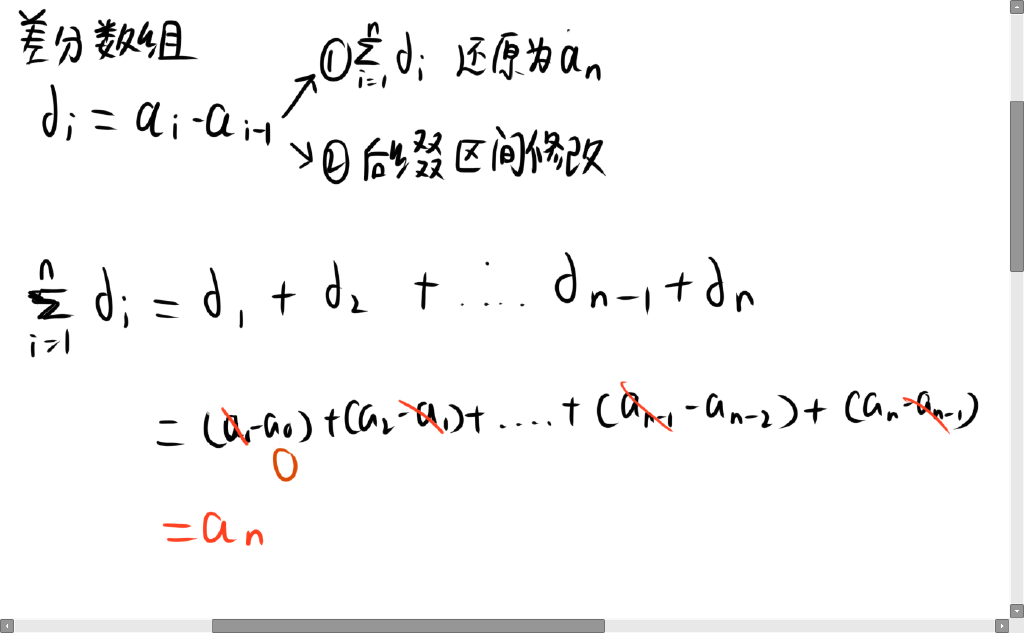 差分数组
d_i = a_i - a_{i-1}
① \sum_{i=1}^{n} d_i 还原为 a_n
② 后缀区间修改
\sum_{i=1}^{n} d_i = d_1 + d_2 + .... d_{n-1} + d_n
= (a_1 - a_0) + (a_2 - a_1) + .... + (a_{n-1} - a_{n-2}) + (a_n - a_{n-1})
0
= a_n